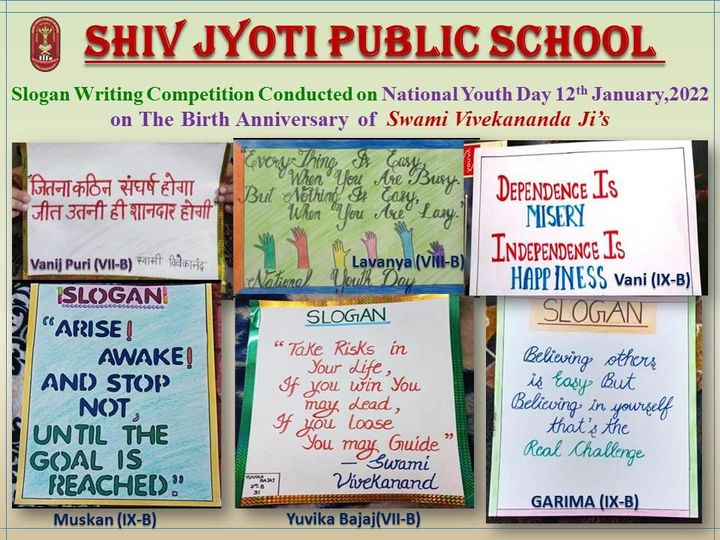 SHIV JYOTI PUBLIC SCHOOL
Slogan Writing Competition Conducted on National Youth Day 12th January,2022
on The Birth Anniversary of Swami Vivekananda Ji's
"जितना कठिन संघर्ष होगा
जीत उतनी ही शानदार होगी"
स्वामी विवेकानंद
Vanij Puri (VII-B)
"Every Thing Is Easy,
When You Are Busy.
But Nothing Is Easy,
When You Are Lazy."
National Youth Day
Lavanya (VIII-B)
DEPENDENCE IS
MISERY
INDEPENDENCE IS
HAPPINESS
Vani (IX-B)
SLOGAN
"ARISE!
AWAKE!
AND STOP
NOT,
UNTIL THE
GOAL IS
REACHED."
Muskan (IX-B)
SLOGAN
"Take Risks in
Your Life,
If you win You
may Lead,
If you Loose
You may Guide"
— Swami
Vivekanand
YUVIKA
BAJAJ
Yuvika Bajaj(VII-B)
SLOGAN
Believing others
is Easy But
Believing in yourself
that's the
Real Challenge
GARIMA (IX-B)